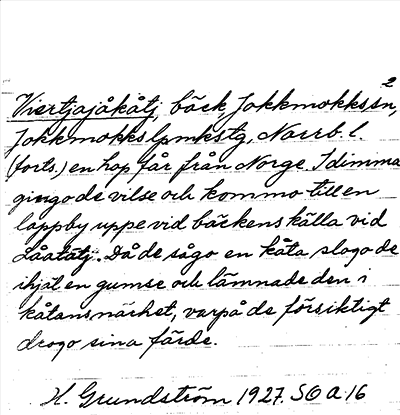 2
Viertjajåkåtj, bäck, Jokkmokks sn,
Jokkmokks lpmkstg, Norrb. l.
(forts.) en hop får från Norge. I dimma
gingo de vilse och kommo till en
lappby uppe vid bäckens källa vid
Låatåtj. Då de sågo en kåta slogo de
ihjäl en gumse och lämnade den i
kåtans närhet, varpå de försiktigt
drogo sina färde.
H. Grundström 1927. SOA.16